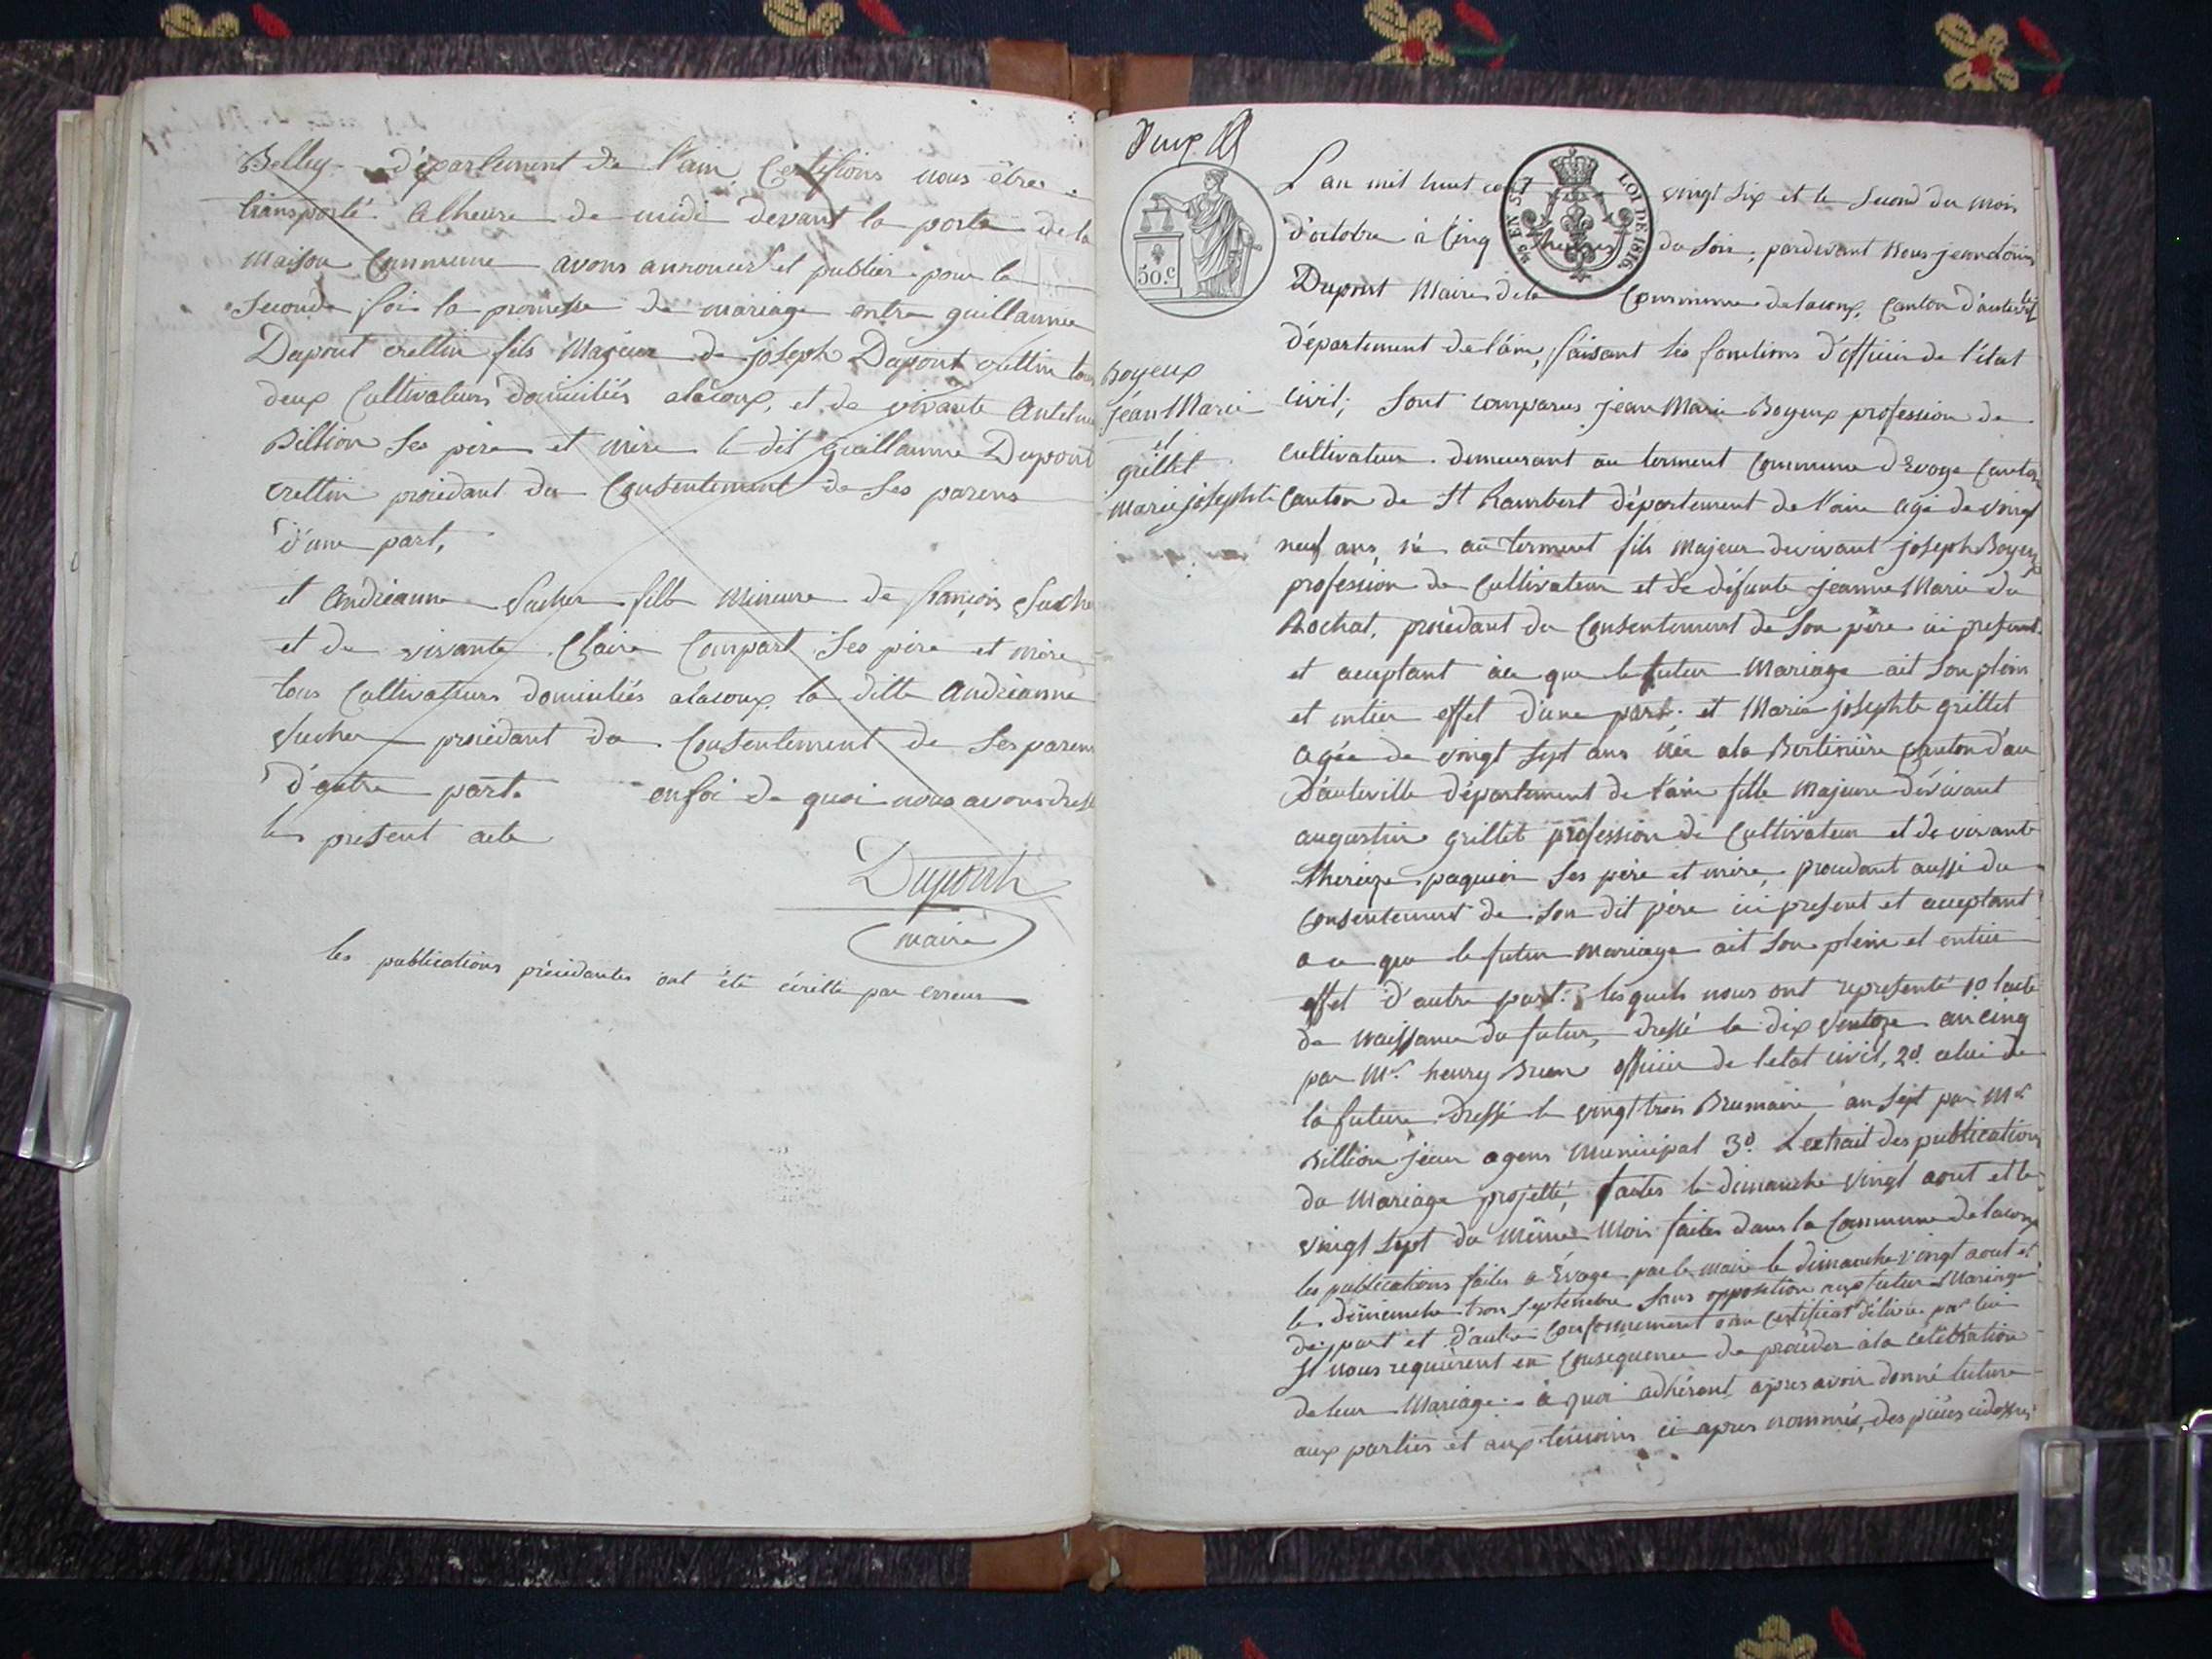 Belley département de l'ain, Certifions nous être
transporté a lheure de midi devant la porte de la
maison Commune avons annoncer et publier pour la
seconde foi la promesse de mariage entre guillaume
Dupont crettin fils Majeur de joseph Dupont crettin tous
deux Cultivateurs domiciliés alacoux, et de vivante Antelme
Billion ses père et mère le dit guillaume Dupont
crettin procédant du Consentement de ses parens
d'une part,
et Andréanne fille Mineure de françois
et de vivante Claire Compart ses père et mère
tous Cultivateurs domiciliés alacoux la ditte Andréanne
procédant du Consentement de ses parens
d'autre part. en foi de quoi nous avons dressé
le present acte
Dupont
maire
les publications précédantes ont été écritte par erreur
Deux
50.C
LOI DE 1816.
Boyeux
jean Marie
et
grillet
Marie josephte
L'an mil huit cent vingt six et le second du mois
d'octobre à Cinq heures du soir, pardevant Nous jean louis
Dupont Maire de la Commune delacoux, Canton d'auteville
département de l'ain, faisant les fonctions d'officier de l'état
civil; sont comparus jean Marie Boyeux profession de
cultivateur demeurant au terment Commune d'Evoge Canton
Canton de St Rambert département de l'ain agé de vingt
neuf ans, né au terment fils majeur de vivant joseph Boyeux
profession de Cultivateur et de défunte jeanne Marie du
Rochat, procédant du Consentement de son père ici present
et acceptant à ce que le futur Mariage ait son plein
et entier effet d'une part. et Marie josephte grillet
agée de vingt sept ans née a la Bertinière Canton d'au
d'auteville département de l'ain fille Majeure de vivant
augustin grillet profession de Cultivateur et de vivante
thereze paquier ses père et mère, procedant aussi du
Consentement de son dit père ici present et acceptant
a ce que le futur mariage ait son plein et entier
effet d'autre part. lesquels nous ont representé 1º lacte
de naissance du futur, dressé le dix Ventoze an cinq
par Mr henry officier de letat civil, 2º celui de
la future dressé le vingt trois Brumaire an sept par Mr
Billion jean agent Municipal 3º Lextrait des publications
du Mariage projetté, faites le dimanche vingt aout et le
vingt sept du même Mois faites dans la Commune de lacoux
les publications faites a Evoge par le maire le dimanche vingt aout et
le dimanche trois septembre sans opposition au futur Mariage
de part et d'autre Conformement au Certificat délivré par lui
Il nous requièrent en Consequence de procéder a la célébration
de leur Mariage à quoi adhérant, apres avoir donné lecture
aux parties et aux témoins ci apres nommés, des pièces cidessus